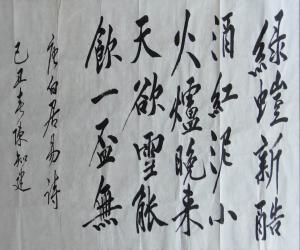 綠螘新醅
酒紅泥小
火爐晚来
天欲雪能
飲一盃無
唐白居易詩
己丑春陳知建